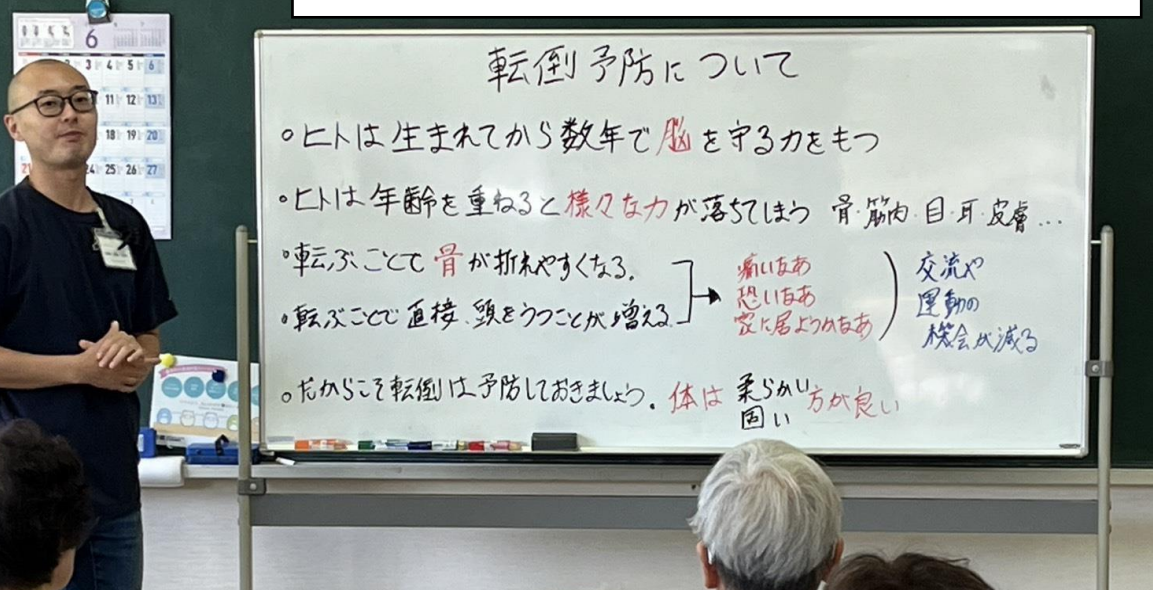 転倒予防について
○ヒトは生まれてから数年で脳を守る力をもつ
○ヒトは年齢を重ねると様々な力が落ちてしまう 骨・筋肉・目・耳・皮膚…
・転ぶことで骨が折れやすくなる。
・転ぶことで直接、頭をうつことが増える
痛いなあ
恐いなあ
家に居ようかなあ
交流や
運動の
機会が減る
○だからこそ転倒は予防しておきましょう。体は柔らかい方が良い
固い
6
3 4 5 6
11 12 13
18 19 20
24 25 26 27